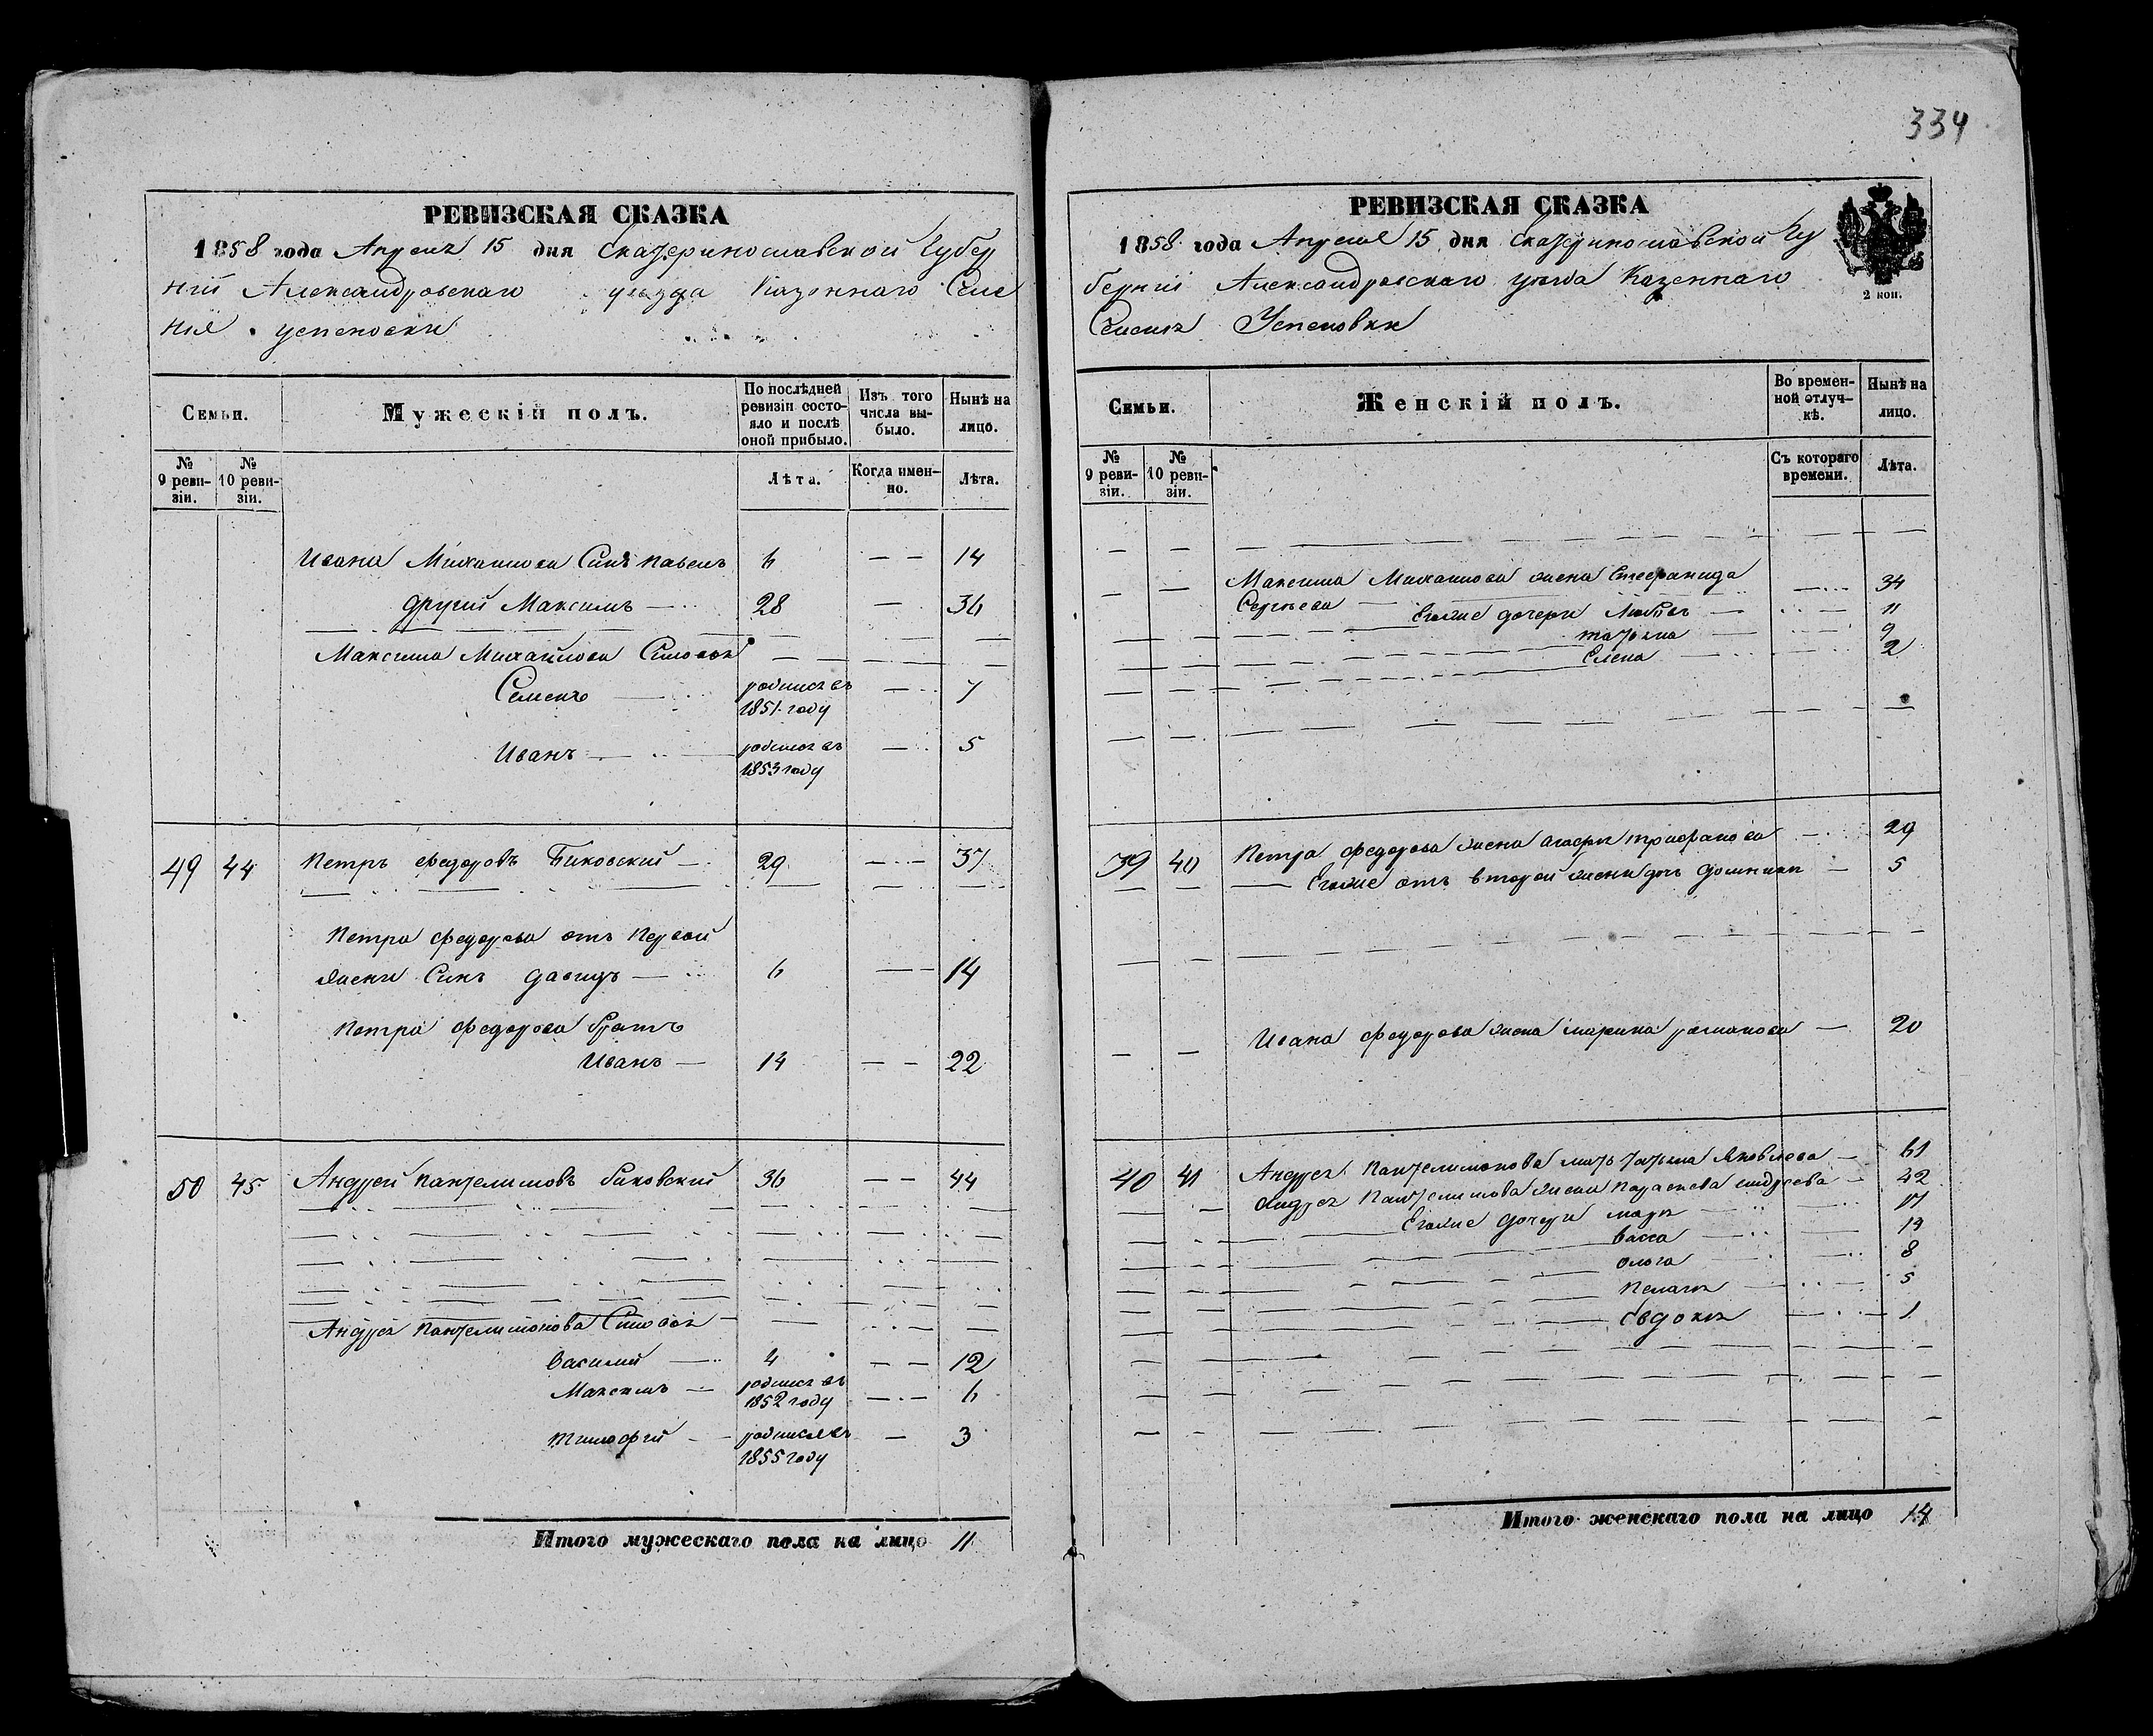 334
РЕВИЗСКАЯ СКАЗКА
1858 года Апреля 15 дня Екатеринославской Губер
ніи Александровскаго уезда Казеннаго Селе
нія Успеновки
Семьи.
Мужескій полъ.
По послѣдней ревизіи состояло и послѣ оной прибыло.
Изъ того числа выбыло.
Нынѣ на лицо.
№ 9 ревизіи.
№ 10 ревизіи.
Лѣта.
Когда именно.
Лѣта.
Ивана Михаилова Синъ Павелъ 6 — — 14
другий Максимъ — 28 — 36
Максима Михайлова Синовья
Семенъ — родился въ 1851 году — 7
Иванъ — родился въ 1853 году — 5
49 44 Петръ Федоровъ Биковский — 29 — 37
Петра Федорова отъ Первой
жены Синъ Давидъ — 6 — — 14
Петра Федорова братъ
Иванъ — 14 — — 22
50 45 Андрей Пантелимовъ Биковский 36 — — 44
Андрея Пантелимонова Синовья
Василий — 4 — — 12
Максимъ — родился въ 1852 году — 6
Тимофій — родился въ 1855 году — 3
Итого мужескаго пола на лицо 11
РЕВИЗСКАЯ СКАЗКА
1858 года Апреля 15 дня Екатеринославской Гу
берніи Александровскаго уезда Казеннаго
Селенія Успеновки
2 коп.
Семьи.
Женскій полъ.
Во временной отлучкѣ.
Нынѣ на лицо.
№ 9 ревизіи.
№ 10 ревизіи.
Съ котораго времени.
Лѣта.
Максима Михаилова жена Стефанида
Сергѣева — 34
Егоже дочери Любовь — 11
Татьяна — 9
Елена — 2
39 40 Петра Федорова жена Агафія Трифанова — 29
Егоже отъ второй жены дочь Домникія — 5
Ивана Федорова жена Марина Романова — 20
40 41 Андрея Пантелимонова мать Татьяна Яковлева — 61
Андрея Пантелимова жена Параскева Андреева — 42
Егоже дочери Марія — 17
Васса — 14
Ольга — 8
Пелагія — 5
Евдокія — 1
Итого женскаго пола на лицо 14